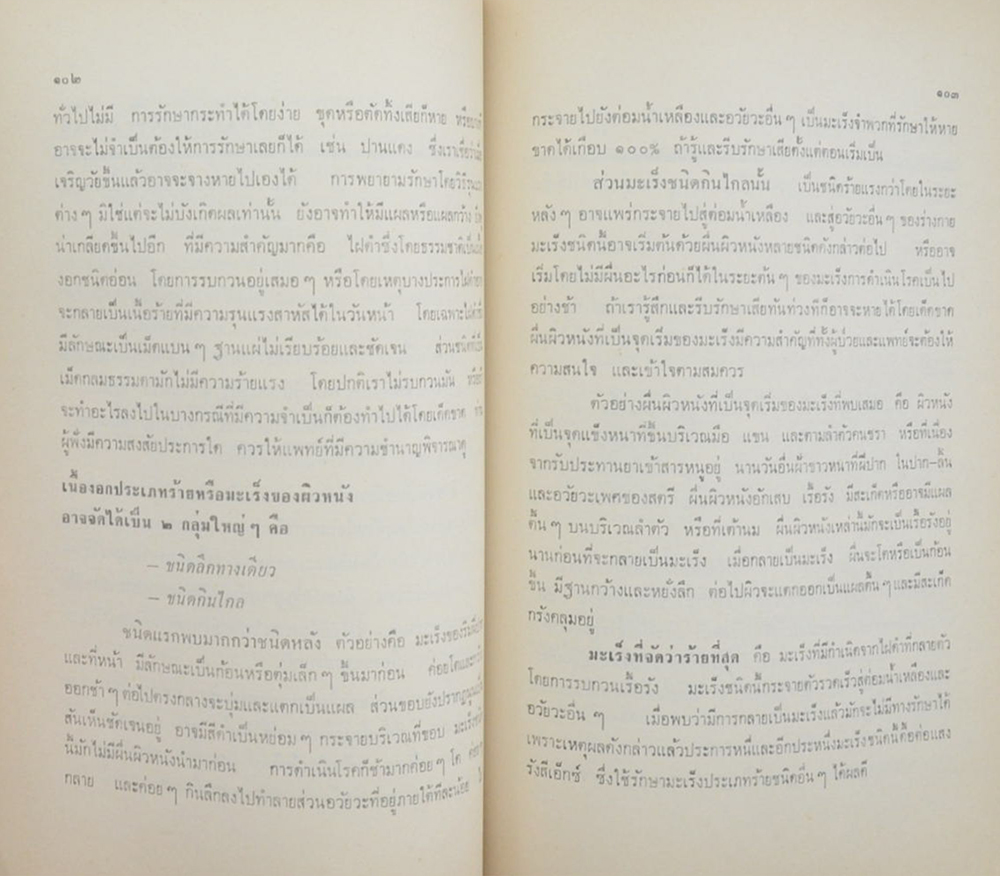 ๑๐๒
ทั่วไปไม่มี การรักษากระทำได้โดยง่าย ขูดหรือตัดทิ้งเสียก็หาย
อาจจะไม่จำเป็นต้องให้การรักษาเลยก็ได้ เช่น ปานแดง ซึ่งเรา
เจริญวัยขึ้นแล้วอาจจะจางหายไปเองได้ การพยายามรักษาโดยวิธี
ต่าง ๆ มิใช่แต่จะไม่บังเกิดผลเท่านั้น ยังอาจทำให้มีแผลหรือแผลกว้าง
น่าเกลียดขึ้นไปอีก ที่มีความสำคัญมากคือ ไฝดำซึ่งโดยธรรมชาติเป็น
งอกชนิดอ่อน โดยการรบกวนอยู่เสมอ ๆ หรือโดยเหตุบางประการ
จะกลายเป็นเนื้อร้ายที่มีความรุนแรงสาหัสได้ในวันหน้า โดยเฉพาะ
มีลักษณะเป็นเม็ดแบน ๆ ฐานแผ่ไม่เรียบร้อยและชัดเจน ส่วนชนิด
เม็ดกลมธรรมดามักไม่มีความร้ายแรง โดยปกติเราไม่รบกวนมัน
จะทำอะไรลงไปในบางกรณีที่มีความจำเป็นก็ต้องทำไปได้โดยเด็ดขาด
ผู้ฟังมีความสงสัยประการใด ควรให้แพทย์ที่มีความชำนาญพิจารณาดู
เนื้องอกประเภทร้ายหรือมะเร็งของผิวหนัง
อาจจัดได้เป็น ๒ กลุ่มใหญ่ ๆ คือ
– ชนิดลึกทางเดียว
– ชนิดกินไกล
ชนิดแรกพบมากกว่าชนิดหลัง ตัวอย่างคือ มะเร็งของริมฝีปาก
และที่หน้า มีลักษณะเป็นก้อนหรือตุ่มเล็ก ๆ ขึ้นมาก่อน ค่อยโตและ
ออกช้า ๆ ต่อไปตรงกลางจะบุ๋มและแตกเป็นแผล ส่วนขอบยังปรากฏ
สันเห็นชัดเจนอยู่ อาจมีสีดำเป็นหย่อม ๆ กระจายบริเวณที่ขอบ
นี้มักไม่มีผื่นผิวหนังนำมาก่อน การดำเนินโรคก็ช้ามากค่อย ๆ โต
กลาย และค่อย ๆ กินลึกลงไปทำลายส่วนอวัยวะที่อยู่ภายใต้ทีละน้อย
๑๐๓
กระจายไปยังต่อมน้ำเหลืองและอวัยวะอื่น ๆ เป็นมะเร็งจำพวกที่รักษาให้หาย
ขาดได้เกือบ ๑๐๐% ถ้ารู้และรีบรักษาเสียตั้งแต่ตอนเริ่มเป็น
ส่วนมะเร็งชนิดกินไกลนั้น เป็นชนิดร้ายแรงกว่าโดยในระยะ
หลัง ๆ อาจแพร่กระจายไปสู่ต่อมน้ำเหลือง และสู่อวัยวะอื่น ๆ ของร่างกาย
มะเร็งชนิดนี้อาจเริ่มต้นด้วยผื่นผิวหนังหลายชนิดดังกล่าวต่อไป หรืออาจ
เริ่มโดยไม่มีผื่นอะไรก่อนก็ได้ในระยะต้น ๆ ของมะเร็งการดำเนินโรคเป็นไป
อย่างช้า ถ้าเรารู้สึกและรีบรักษาเสียทันท่วงทีก็อาจจะหายได้โดยเด็ดขาด
ผื่นผิวหนังที่เป็นจุดเริ่มของมะเร็งมีความสำคัญที่ทั้งผู้ป่วยและแพทย์จะต้องให้
ความสนใจ และเข้าใจตามสมควร
ตัวอย่างผื่นผิวหนังที่เป็นจุดเริ่มของมะเร็งที่พบเสมอ คือ ผิวหนัง
ที่เป็นจุดแข็งหนาที่ขึ้นบริเวณมือ แขน และตามลำตัวคนชรา หรือที่เนื่อง
จากรับประทานยาเข้าสารหนูอยู่ นานวันอื่นฝ้าขาวหนาที่ฝีปาก ในปาก–ลิ้น
และอวัยวะเพศของสตรี ผื่นผิวหนังอักเสบ เรื้อรัง มีสะเก็ดหรืออาจมีแผล
ตื้น ๆ บนบริเวณลำตัว หรือที่เต้านม ผื่นผิวหนังเหล่านี้มักจะเป็นเรื้อรังอยู่
นานก่อนที่จะกลายเป็นมะเร็ง เมื่อกลายเป็นมะเร็ง ผื่นจะโตหรือเป็นก้อน
ขึ้น มีฐานกว้างและหยั่งลึก ต่อไปผิวจะแตกออกเป็นแผลตื้น ๆ และมีสะเก็ด
กรังคลุมอยู่
มะเร็งที่จัดว่าร้ายที่สุด คือ มะเร็งที่มีกำเนิดจากไฝดำที่กลายตัว
โดยการรบกวนเรื้อรัง มะเร็งชนิดนี้กระจายตัวรวดเร็วสู่ต่อมน้ำเหลืองและ
อวัยวะอื่น ๆ เมื่อพบว่ามีการกลายเป็นมะเร็งแล้วมักจะไม่มีทางรักษาได้
เพราะเหตุผลดังกล่าวแล้วประการหนึ่งและอีกประหนึ่งมะเร็งชนิดนี้ดื้อต่อแสง
รังสีเอ็กซ์ ซึ่งใช้รักษามะเร็งประเภทร้ายชนิดอื่น ๆ ได้ผลดี